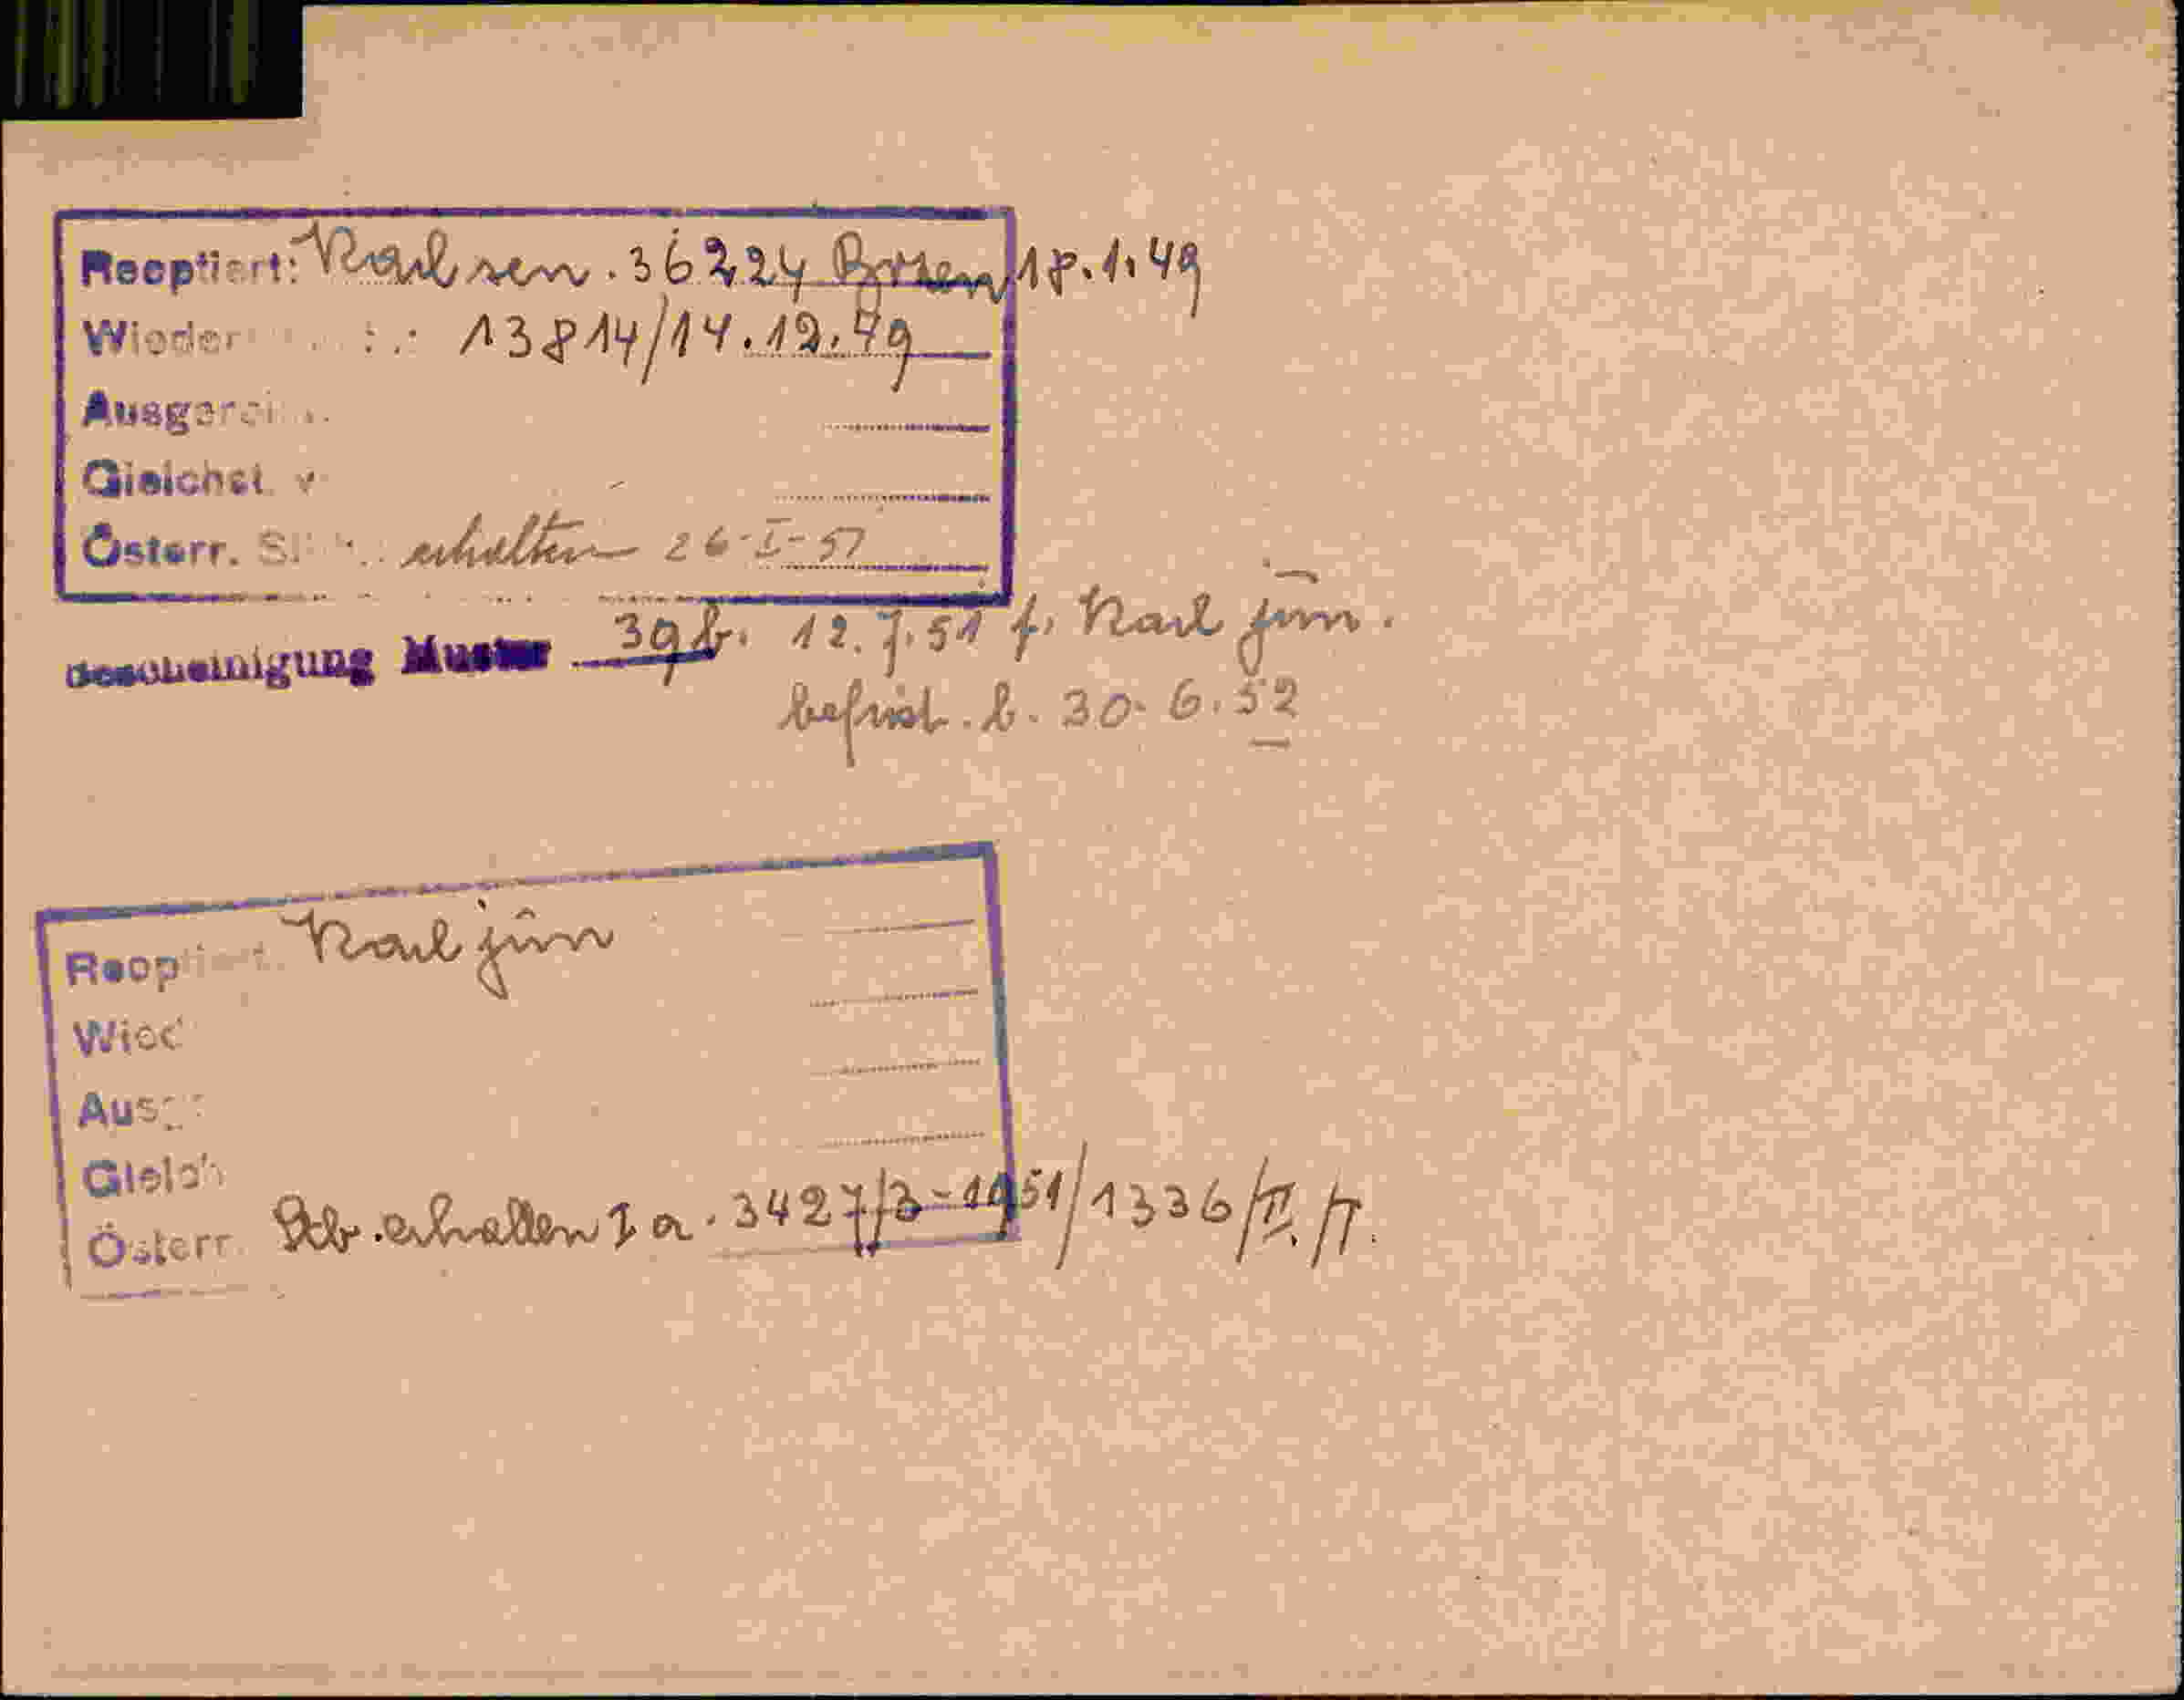 Reoptiert: Karl sen. 36224 Bozen 18.1.49
Wieder : 13814/14.12.49
Ausgerei
Gleichst. v
Österr. St erhalten 26-I-51
Bescheinigung Muster 39b. 12.7.51 f. Karl jun.
befrist. b. 30.6.52
Reoptiert. Karl jun
Wied
Ausg
Gleich
Österr. Stb. erhalten I a. 3427/3-1951/1336/II. /T.